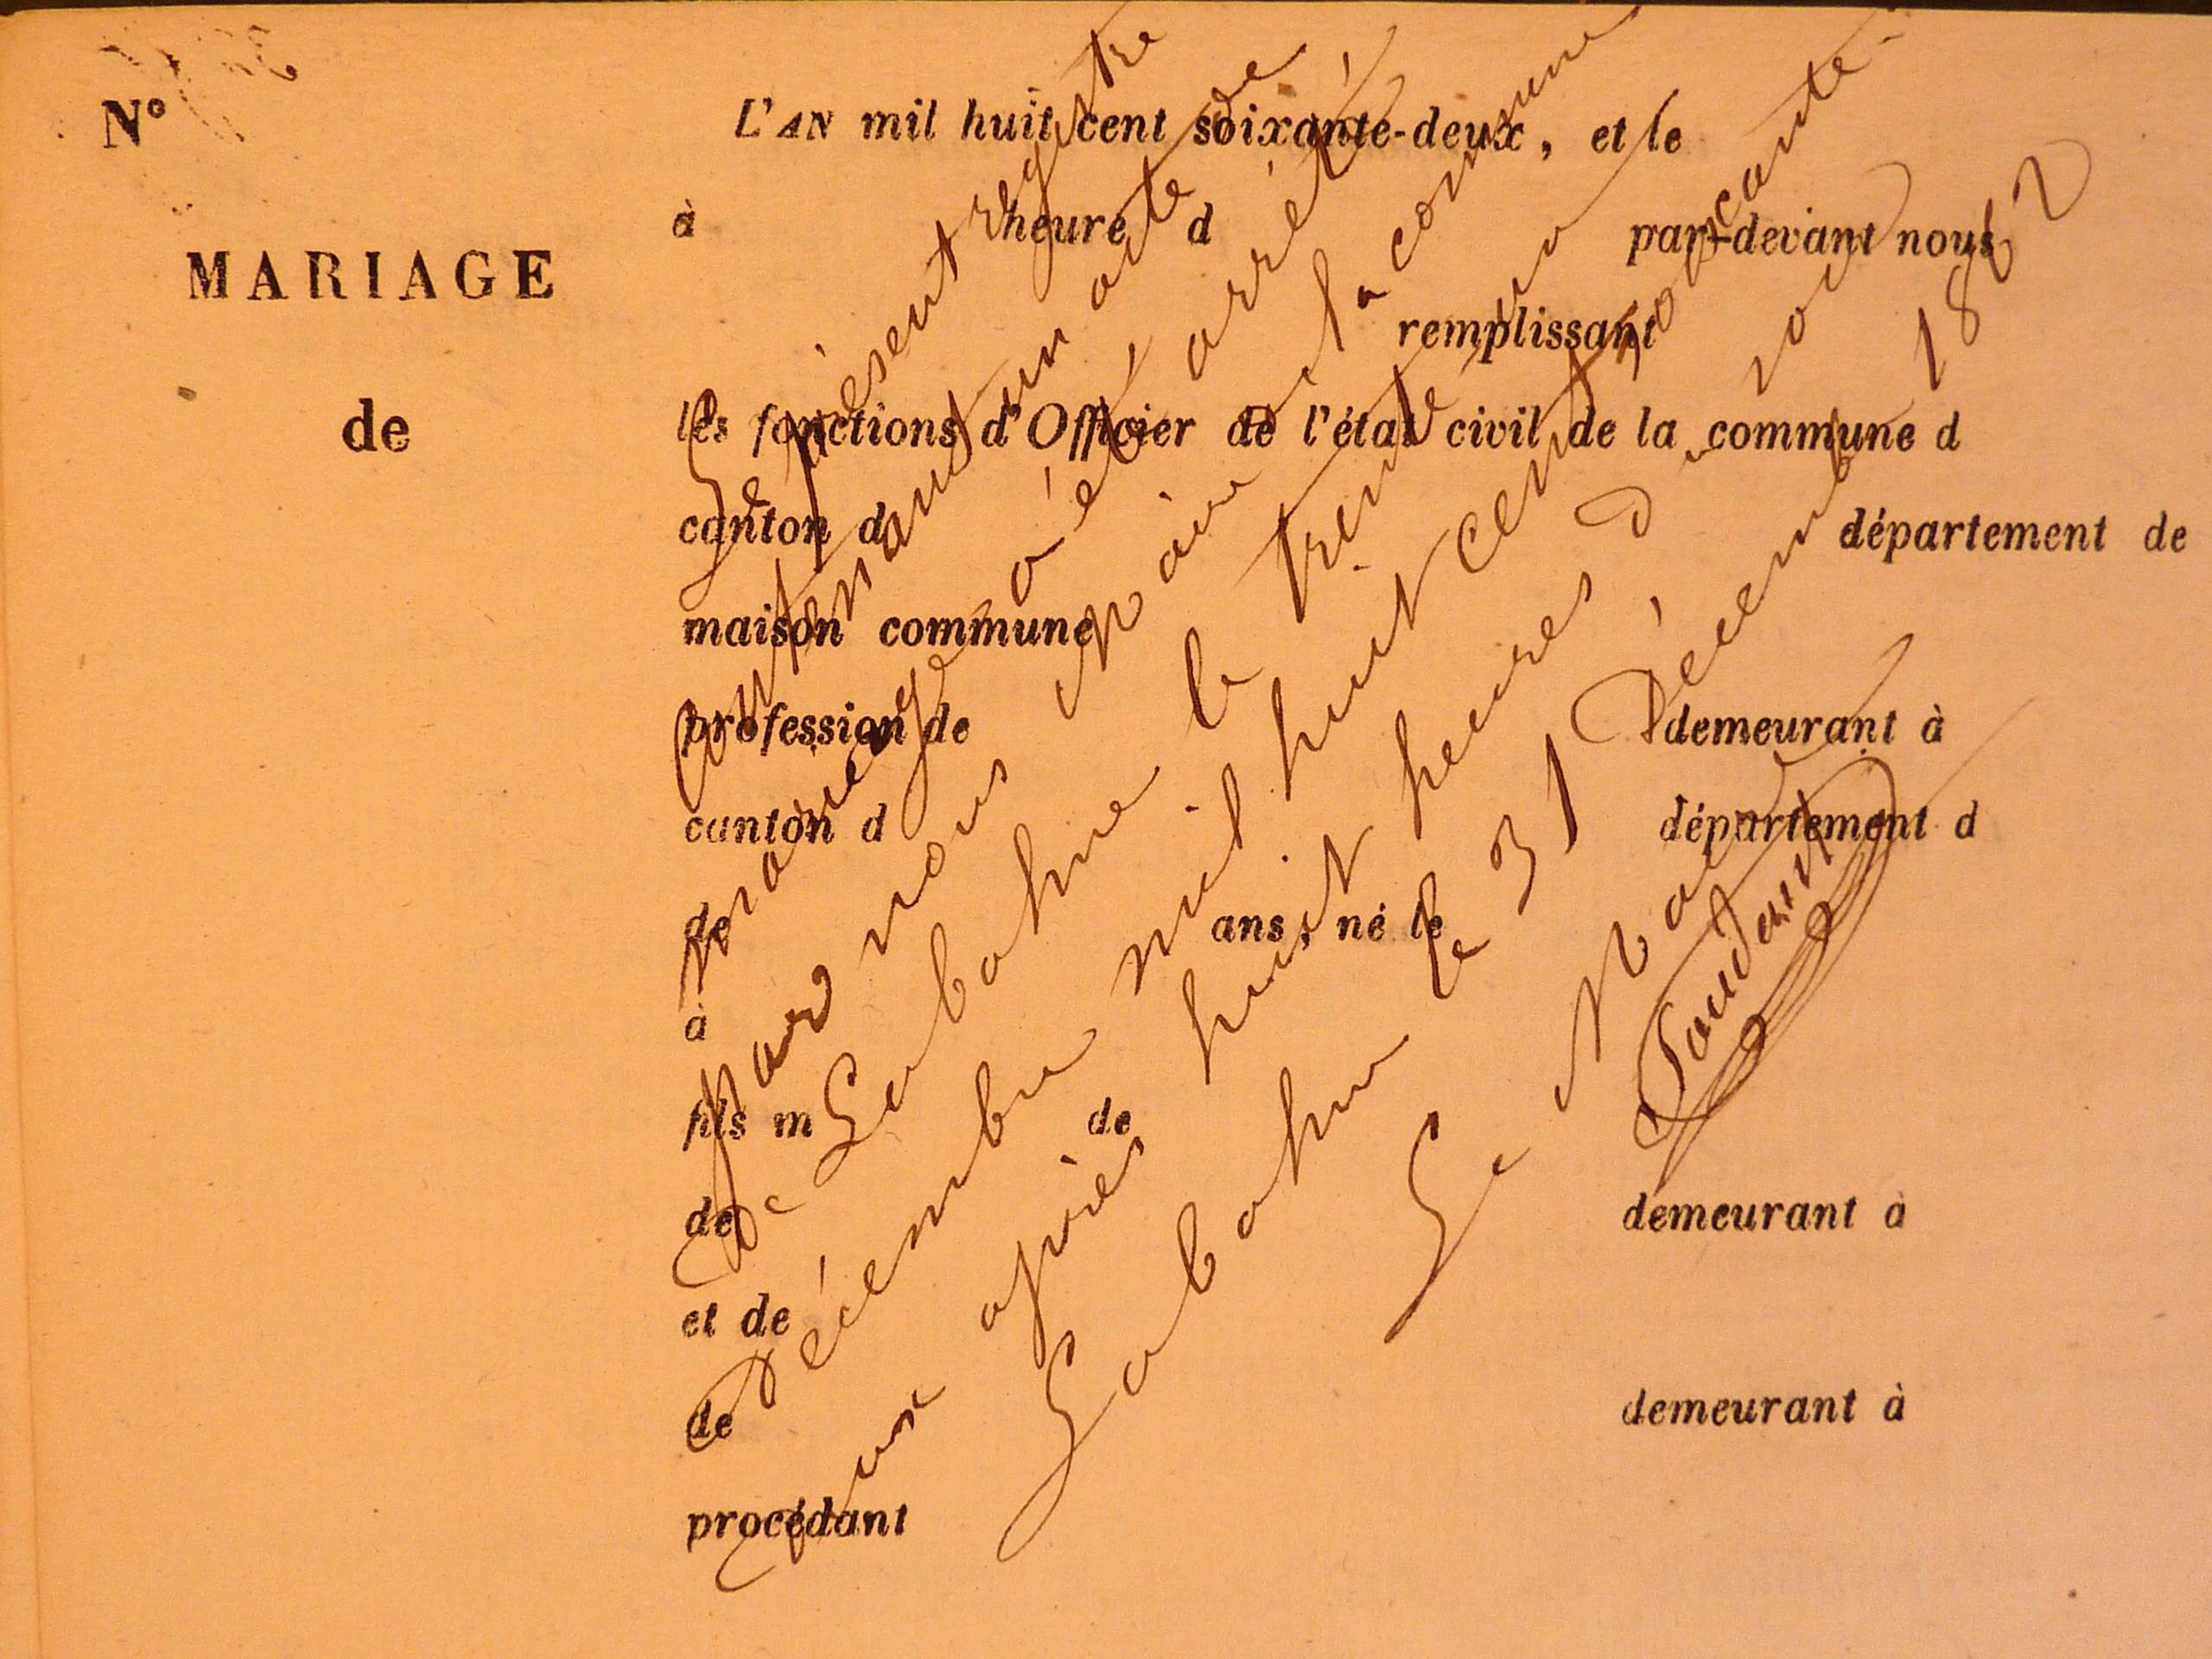 N°
MARIAGE
de
L'AN mil huit cent soixante-deux, et le
à heure d par-devant nous
remplissant
les fonctions d'Officier de l'état civil de la commune d
canton d département de
maison commune
profession de demeurant à
canton d département d
de ans, né le
à
fils m de
de demeurant à
et de
de demeurant à
procédant
Le présent registre
contenant un acte de
mariage a été arrêté
par nous Maire de la commune
de Labahve le trente un
Décembre mil huit cent soixante
deux après huit heures du soir
le 31 Décembre 1862
Le Maire